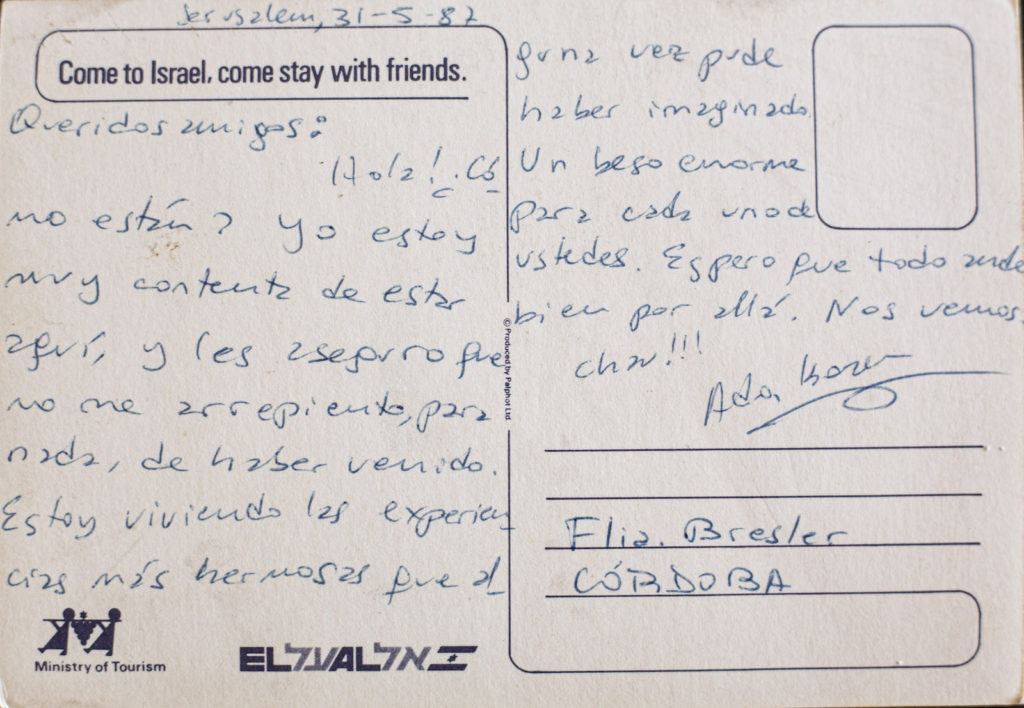 Jerusalem, 31-5-82
Come to Israel, come stay with friends.
Queridos amigos:
¡Hola! ¿Có
mo están? Yo estoy
muy contenta de estar
aquí, y les aseguro que
no me arrepiento, para
nada, de haber venido.
Estoy viviendo las experien
cias más hermosas que al
guna vez pude
haber imaginado.
Un beso enorme
para cada uno de
ustedes. Espero que todo ande
bien por allá. Nos vemos.
chau!!!
Ada
Flia. Bresler
CÓRDOBA
© Produced by Palphot Ltd
Ministry of Tourism
ELעלALאל